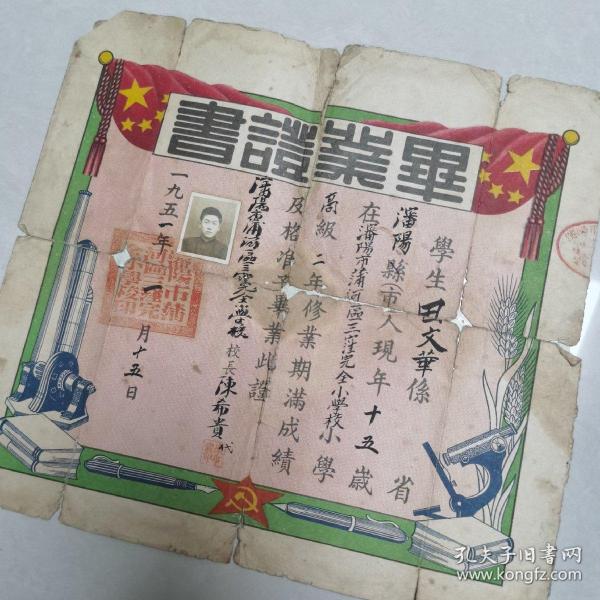 書證業畢
學生田文華係　　省
瀋陽縣(市)人現年十五歲
在瀋陽市蒲河區三窪完全小學校小學
高級二年修業期滿成績
及格准予畢業此證
校長陳希貴代
一九五一年一月十五日
孔夫子旧書网
www.kongfz.com